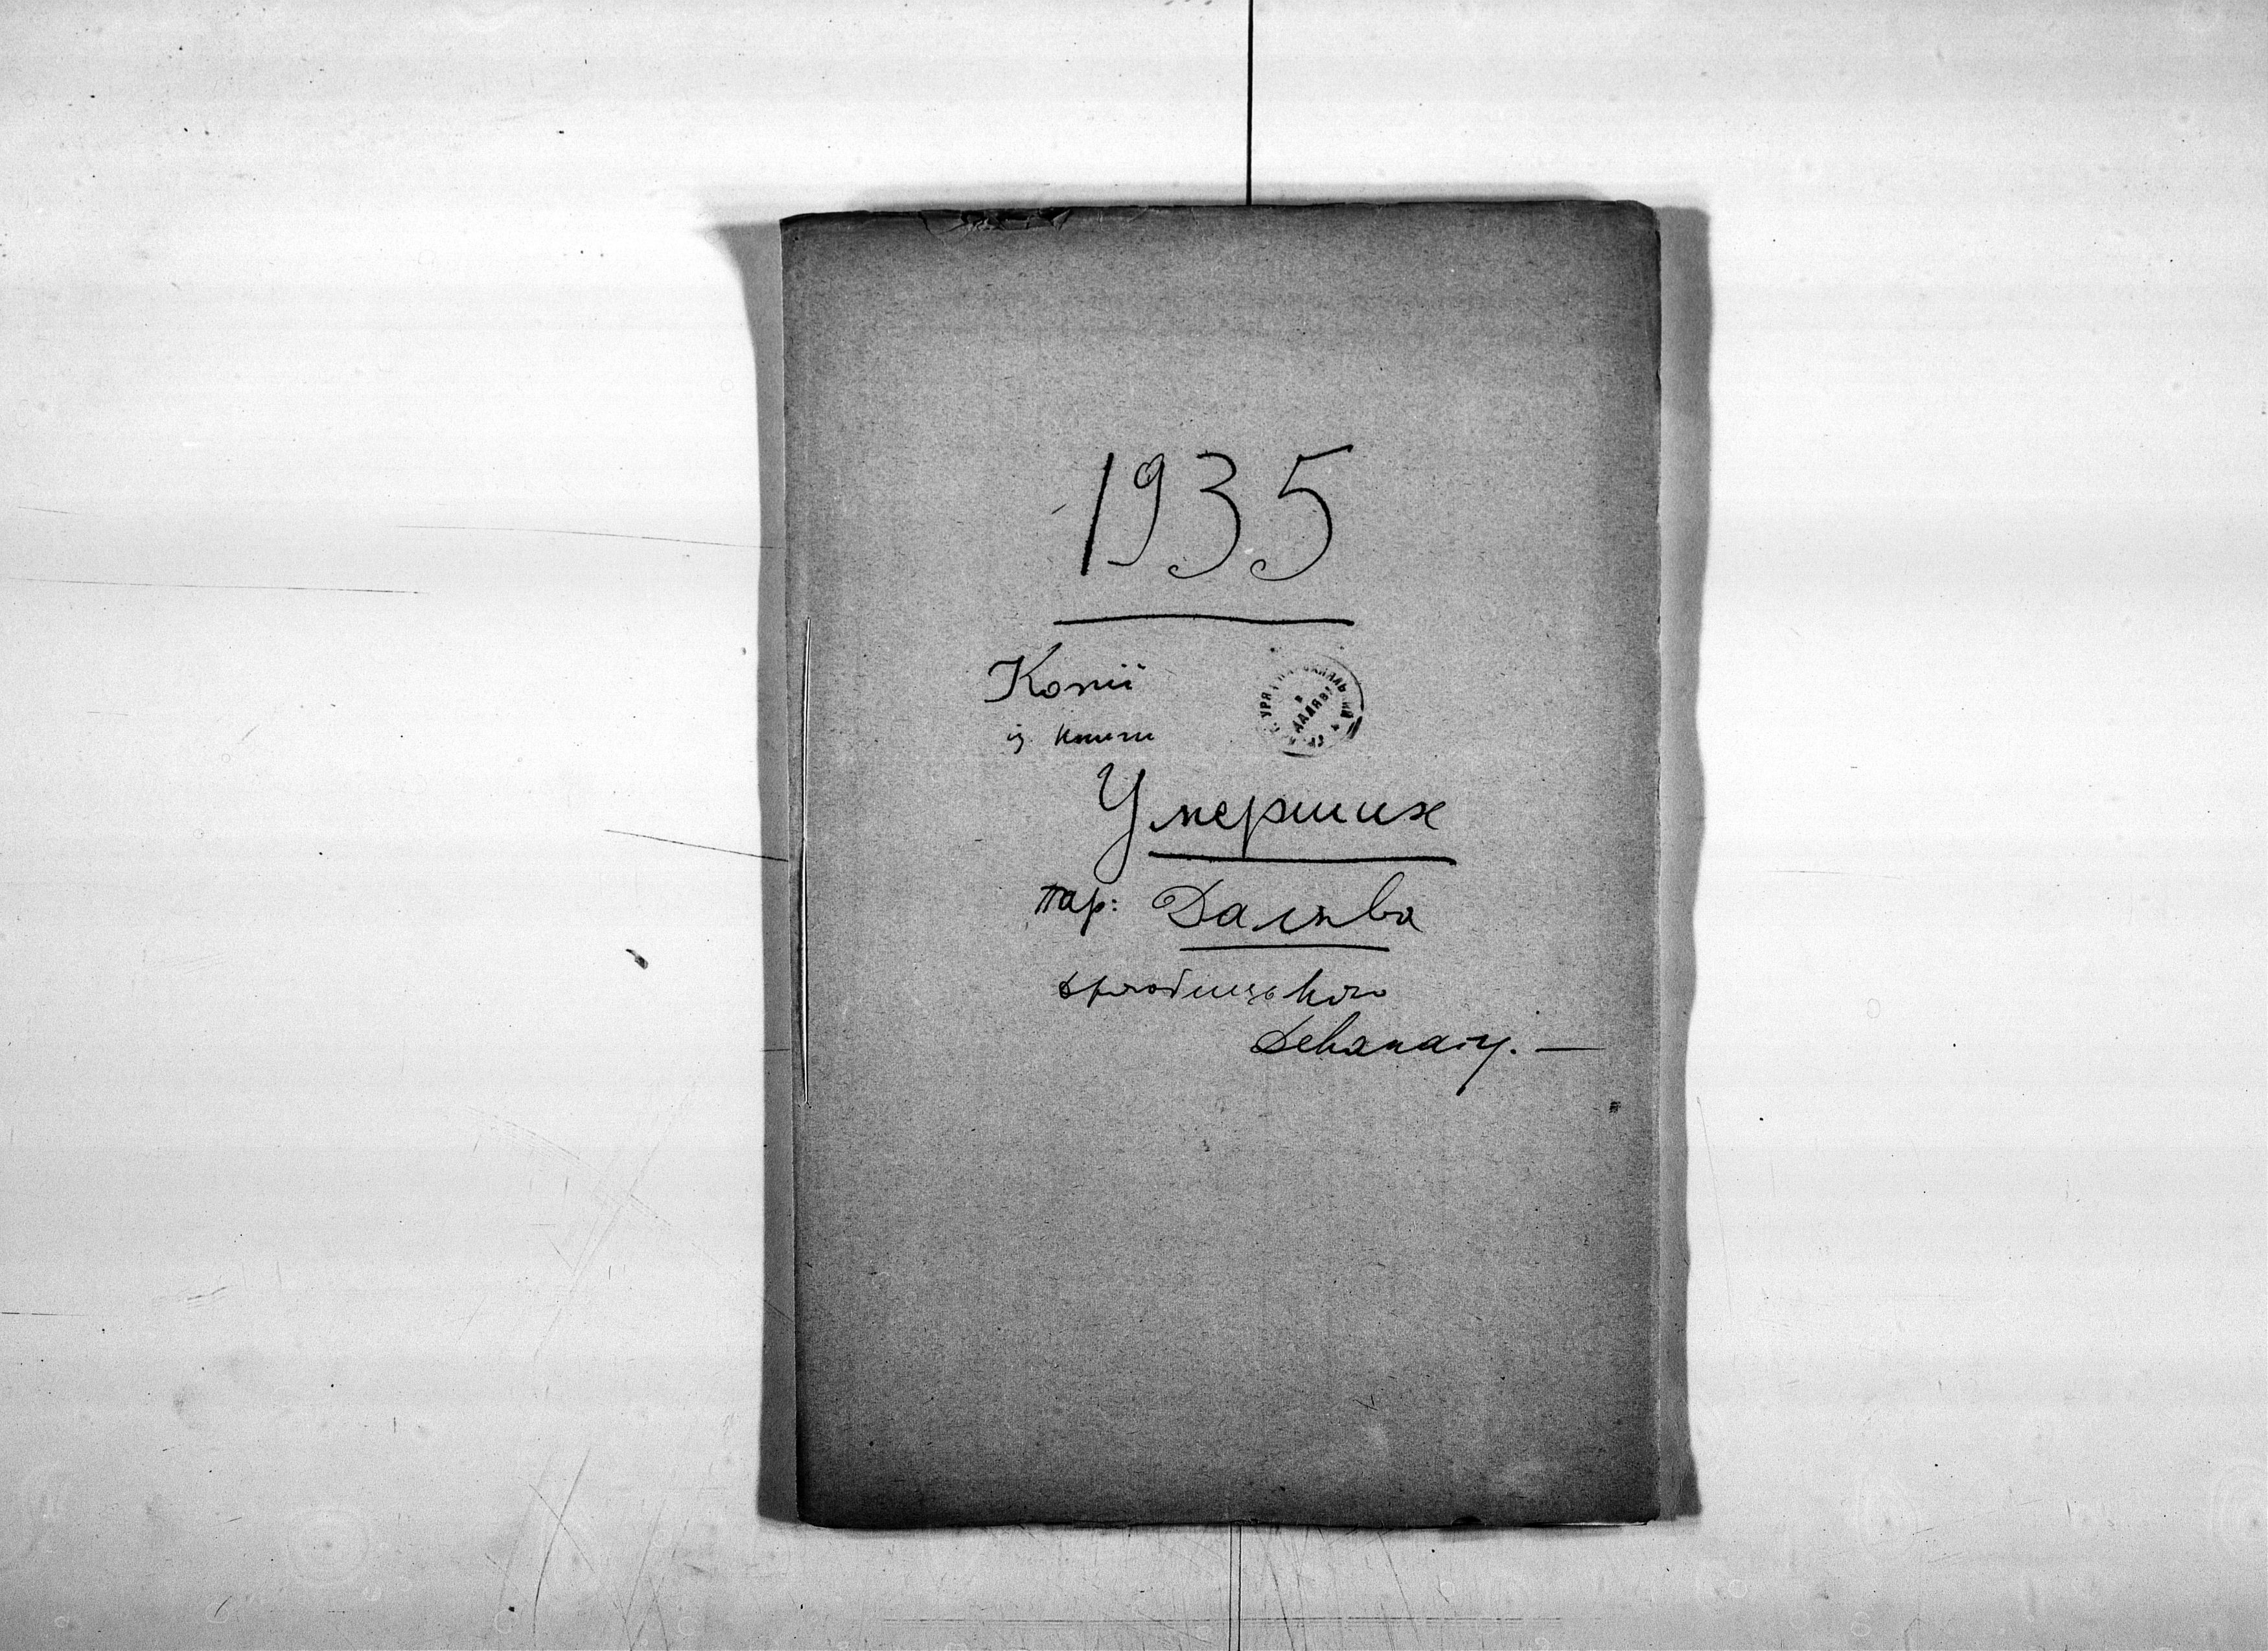 1935
Копії
із книги
Умерших
пар: Далява
дрогобицького
Деканату. —